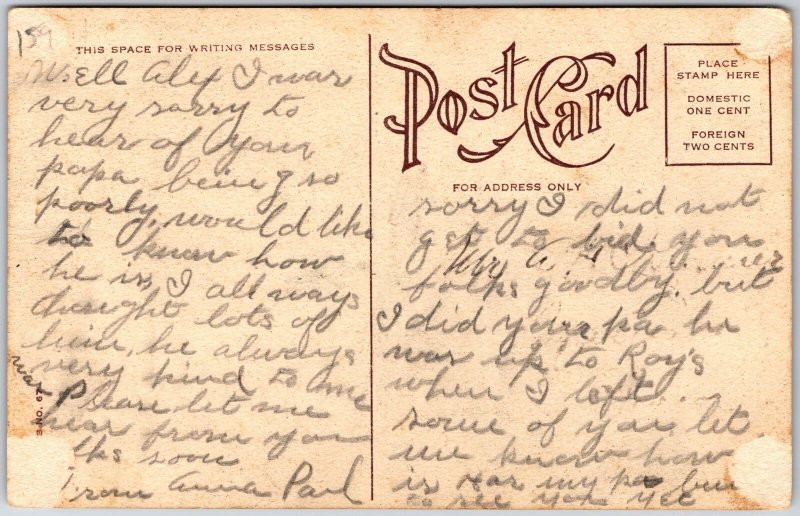 159
THIS SPACE FOR WRITING MESSAGES
Well Alex I was
very sorry to
hear of your
papa being so
poorly, would like
to know how
he is, I all ways
thought lots of
him, he always
was very kind to me
Please let me
hear from you
folks soon
From Anna Paul
S. NO. 67
Post Card
PLACE
STAMP HERE
DOMESTIC
ONE CENT
FOREIGN
TWO CENTS
FOR ADDRESS ONLY
sorry I did not
get to bid you
Mr. A.
folks goodby. but
I did your pa, he
was up to Roy's
when I left
some of you let
me know how
is my pa
to see you